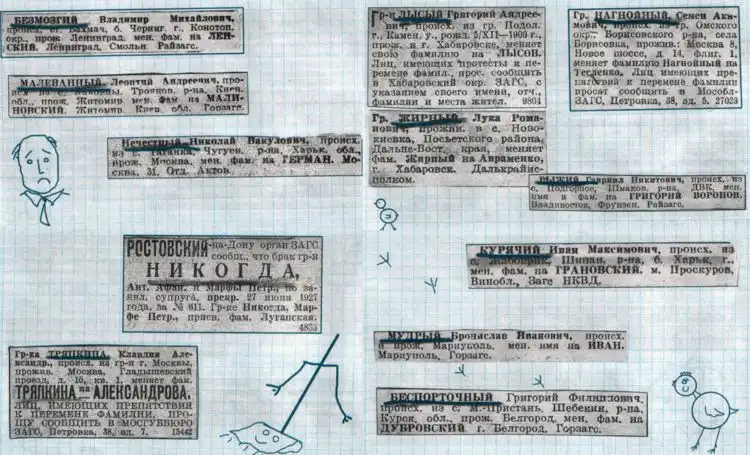 БЕЗМОЗГИЙ Владимир Михайлович,
происх. с. Бахмач, б. Черниг. г., Конотоп.
окр., прож Ленинград мен. фам. на ЛЕН-
СКИЙ. Ленинград, Смольн. Райзагс.
МАЛЕВАННЫЙ Леонтий Андреевич, про-
Троянов. р-на, Киев.
обл., прож. Житомир. мен. фам на МАЛИ-
НОВСКИЙ. Житомир, Киев. обл., Горзагс.
Нечестный Николай Вакулович, происх.
из с. Гиганка, Чугуев. р-на, Харьк. обл.,
прож. Москва, мен. фам. на ГЕРМАН. Мо-
сква. 31. Отд. Актов.
РОСТОВСКИЙ-на-Дону орган ЗАГС
сообщ., что брак гр-н
НИКОГДА,
Ант. Афан. и Марфы Петр., по за-
явл. супруга, прекр. 27 июня 1927
года, за № 611. Гр-ке Никогда, Мар-
фе Петр., присв. фам. Луганская.
4835
Гр-ка ТРЯПКИНА, Клавдия Але-
ксандр., происх. из гр-н г. Москвы,
прожив. Москва, Гладышевский
проезд, д. 10, кв. 1, меняет фам.
ТРЯПКИНА на АЛЕКСАНДРОВА.
ЛИЦ, ИМЕЮЩИХ ПРЕПЯТСТВИЯ
К ПЕРЕМЕНЕ ФАМИЛИИ, ПРО-
ШУ СООБЩИТЬ В МОСГУБЮРО
ЗАГС, Петровка, 38, зд. 7. 13442
Гр-н ЛЫСЫЙ Григорий Андрее-
вич, происх. из гр. Подол.
г., Камен. у., рожд. 5/XII—1900 г.,
прож. в г. Хабаровске, меняет
свою фамилию на ЛЫСОН.
Лиц, имеющих протесты к пе-
ремене фамил., прос. сообщить
в Хабаровский окр. ЗАГС, с
указанием своего имени, отч.,
фамилии и места жител. 9804
Гр. ЖИРНЫЙ Лука Рома-
нович, прожив. в с. Ново-
киевка, Посьетского района,
Дальне-Вост. края, меняет
фам. Жирный на Авраменко,
г. Хабаровск. Далькрайис-
полком.
Гр. НАГНОЙНЫЙ, Семен Аки-
мович, происх. из гр. Омского
окр., Борисовского р-на, села
Борисовка, прожив.: Москва 8,
Новое шоссе, д. 14, флиг. 1,
меняет фамилию Нагнойный на
Тесленко. Лиц имеющих пре-
пятствия к перемене фамилии
просят сообщить в Мособл-
ЗАГС, Петровка, 38, зд. 5. 27023
РЫЖИЙ Гавриил Никитович, происх. из
с. Подгорное, Шмаков. р-на, ДВК, мен.
имя и фам. на ГРИГОРИЙ ВОРОНОВ.
Владивосток, Фрунзен. Райзагс.
КУРЯЧИЙ Иван Максимович, происх. из
р-на, б. Харьк. г.,
мен. фам. на ГРАНОВСКИЙ. м. Проскуров,
Винобл., Загс НКВД.
МУДРЫЙ Бронислав Иванович, происх.
и прож. Мариуполь, мен. имя на ИВАН.
Мариуполь, Горзагс.
БЕСПОРТОЧНЫЙ Григорий Филиппович,
происх. из с. М.-Пристань, Шебекин. р-на,
Курск. обл., прож. Белгород, мен. фам. на
ДУБРОВСКИЙ. г. Белгород, Горзагс.